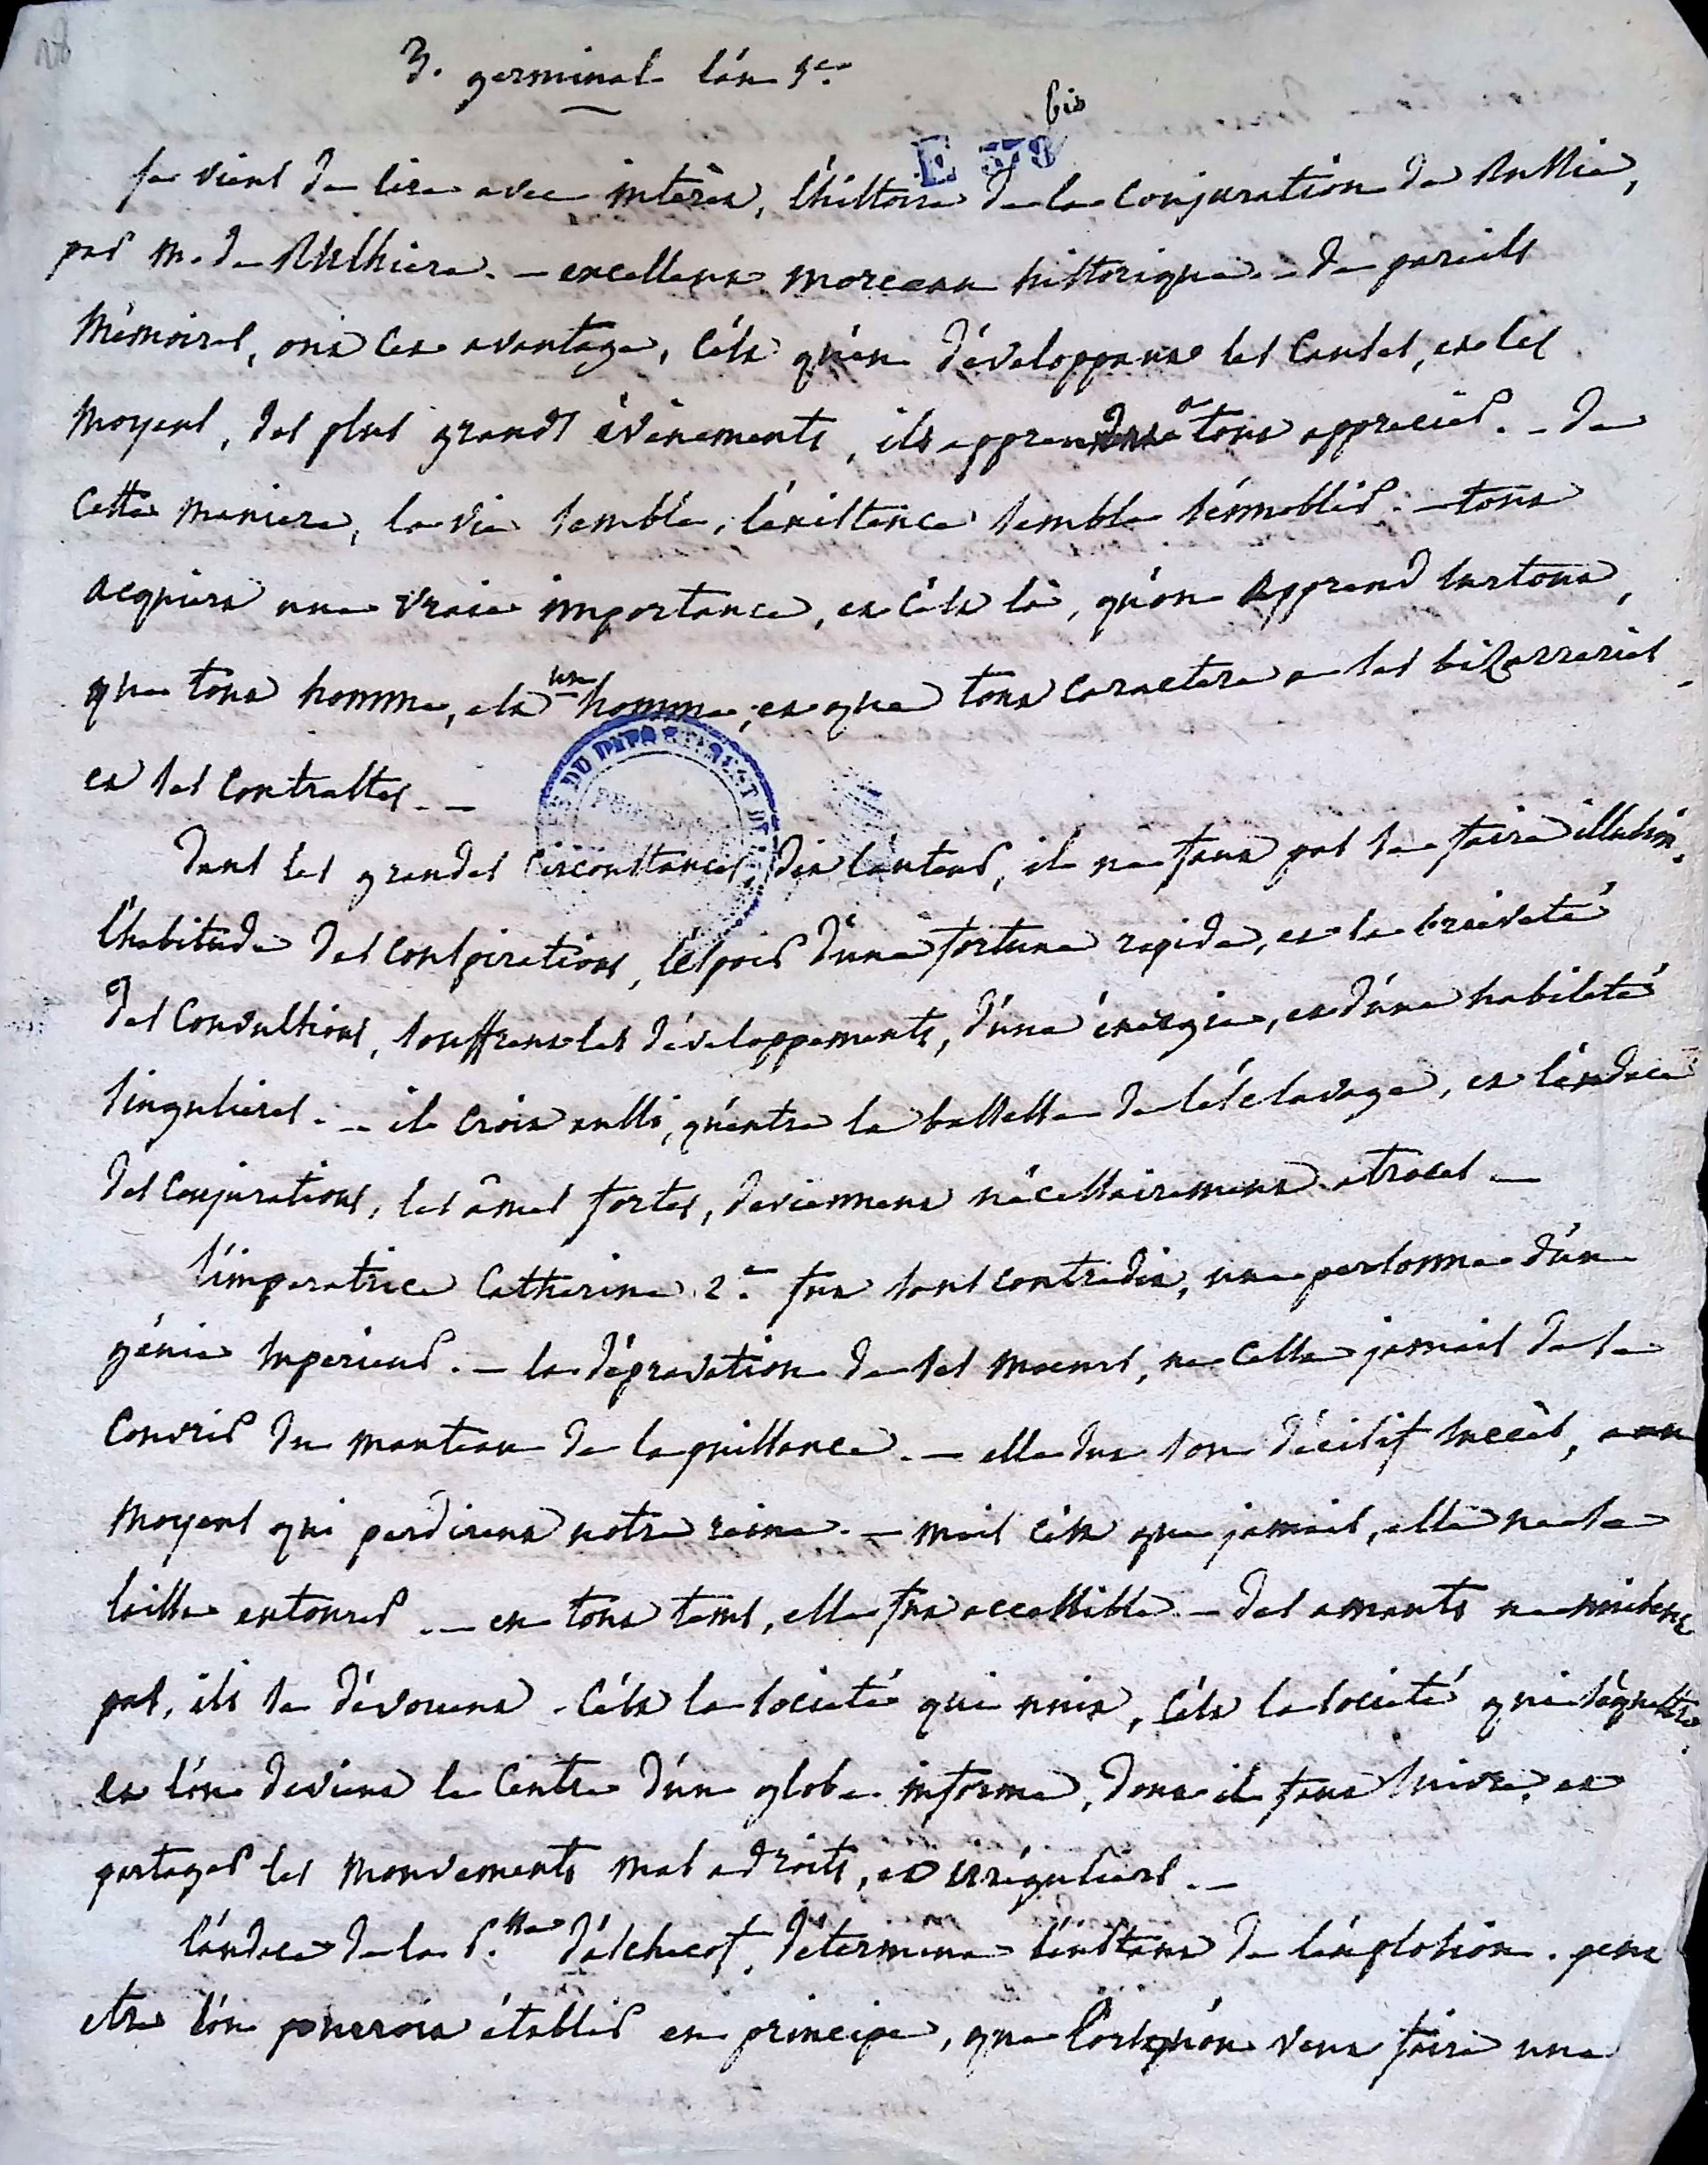 28
3. germinal l'an 5e.
bis
E 378
Je viens de lire avec intérêt, l'histoire de la conjuration de Russie,
par M. de Rulhiere. — excellent morceau historique. — de pareils
Mémoires, ont cet avantage, c'est qu'en développant les causes, et les
moyens, des plus grands évènements, ils apprennent a tout apprecier. — De
cette maniere, la vie semble, l'existence semble s'ennoblir. — tout
acquiert une vraie importance, et c'est là, qu'on apprend surtout,
que tout homme, est un homme, et que tout caractere a ses bizarreries
et ses contrastes. —
Dans les grandes circonstances, dit l'auteur, il ne faut pas se faire illusion.
l'habitude des conspirations, l'espoir d'une fortune rapide, et la brièveté
des convulsions, souffrent les développements, d'une énergie, et d'une habileté
singulieres. — il croit aussi, qu'entre la bassesse de l'esclavage, et l'audace
des conjurations, les âmes fortes, deviennent nécessairement atroces —
l'imperatrice Catherine 2e. fut sans contredit, une personne d'un
génie superieur. — la dépravation de ses moeurs, ne cessa jamais de se
couvrir du manteau de la puissance. — elle dut son décisif succès, aux
moyens qui perdirent notre reine. — mais c'est que jamais, elle ne se
laissa entourer. — en tout tems, elle fut accessible. — des amants ne nuisent
pas, ils se dévouent. c'est la societé qui nuit, c'est la societé qui séquestre
et l'on devient le centre d'un globe informe, dont il faut suivre, et
partager les mouvements mal adroits, et irréguliers. —
l'audace de la P.sse d'Aschcof, détermina l'instant de l'explosion. peut
etre l'on pourroit établir en principe, que lorsqu'on veut faire une